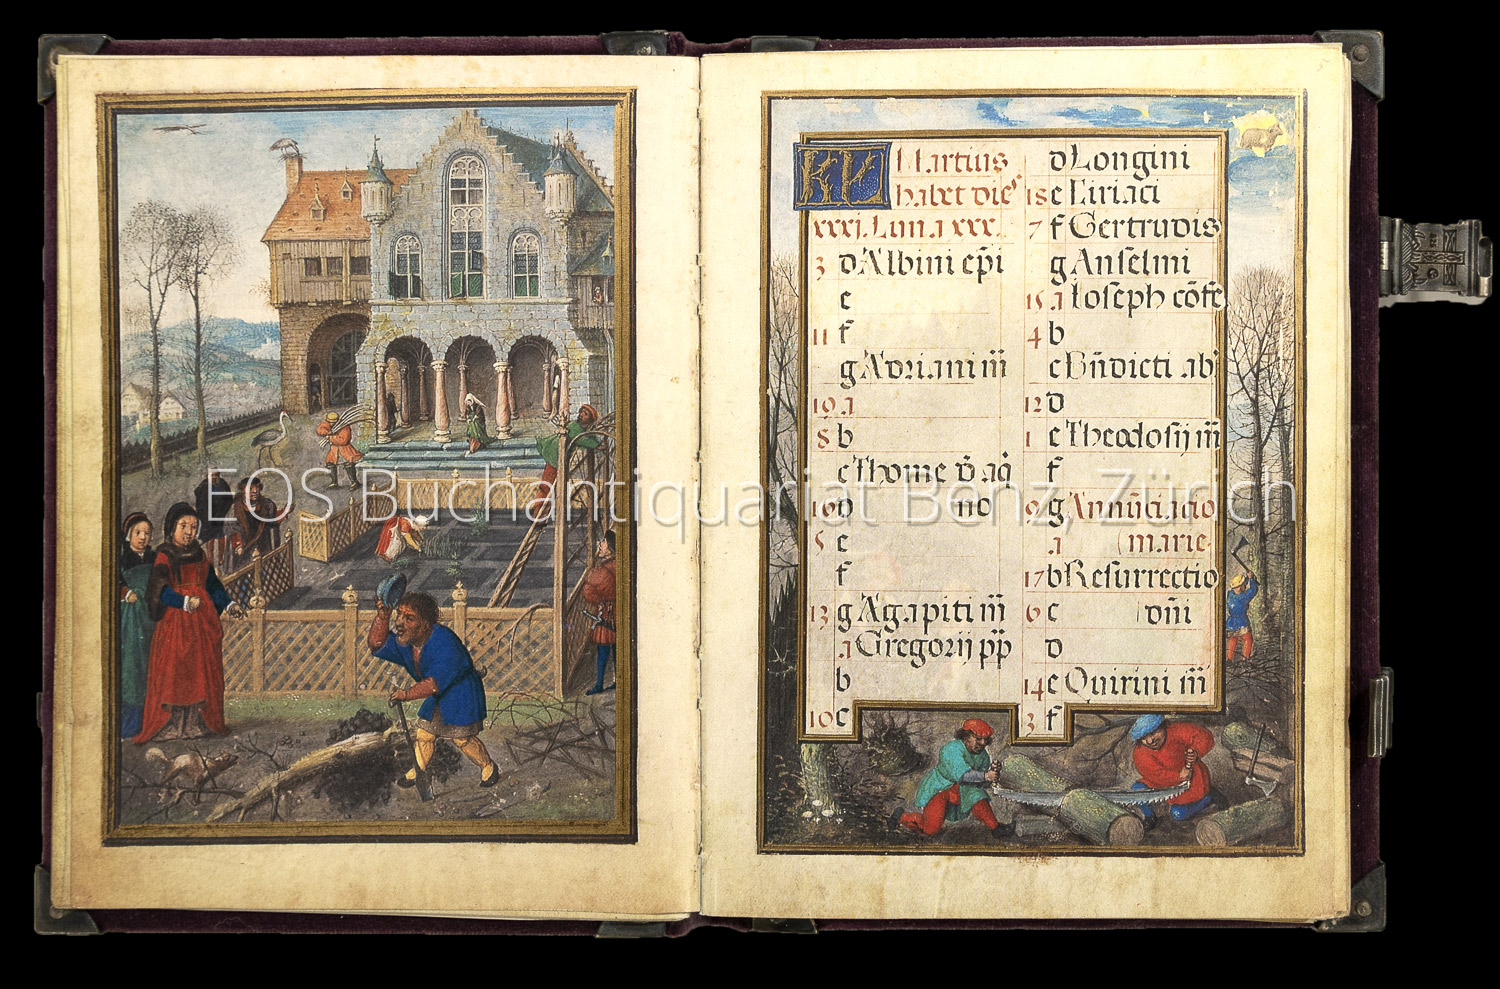 KL Martius
habet dies
xxxj. Luna xxx.
3 d Albini ep̄i
e
11 f
g Adriani m̄
19 a
8 b
c Thome d̄ aq̄
16 d no
5 e
f
13 g Agapiti m̄
a Gregorij pp̄
b
10 c
d Longini
18 e Ciriaci
7 f Gertrudis
g Anselmi
15 a Ioseph cōfe
4 b
c Bn̄dicti ab
12 d
1 e Theodosij m̄
f
9 g Annūciacio
a marie
17 b Resurrectio
6 c dn̄i
d
14 e Quirini m̄
3 f
EOS Buchantiquariat Benz, Zürich